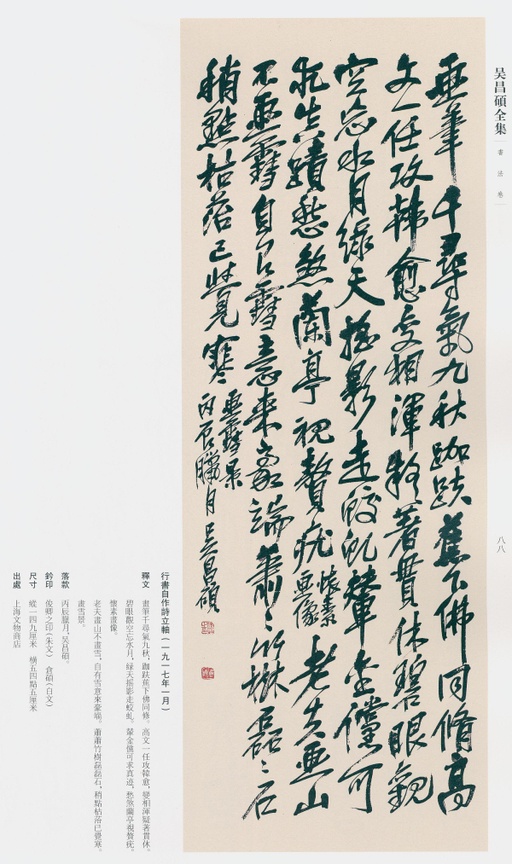 吴昌碩全集
書法卷
八八
画筆千尋氣九秋跏趺蕉下佛同脩高
文一任攻韩愈变相渾疑著貫休碧眼觀
空忘水月緑天摇影走蛟虬輦金儻可
求真蹟愁煞蘭亭視贅疣懷素画像老夫画山
不画雪自有雪意来豪端蕭々竹樹磊々石
稍點枯苔已覺寒画雪景
丙辰臘月吴昌碩
行書自作詩立軸（一九一七年一月）
釋文 畫筆千尋氣九秋，跏趺蕉下佛同脩。高文一任攻韓愈，變相渾疑著貫休。
碧眼觀空忘水月，緑天摇影走蛟虬。輦金儻可求真迹，愁煞蘭亭視贅疣。
懷素畫像。
老夫畫山不畫雪，自有雪意來豪端。蕭蕭竹樹磊磊石，稍點枯苔已覺寒。
畫雪景。
落款 丙辰臘月，吴昌碩。
鈐印 俊卿之印（朱文） 倉碩（白文）
尺寸 縱一四九厘米 横五四點五厘米
出處 上海文物商店